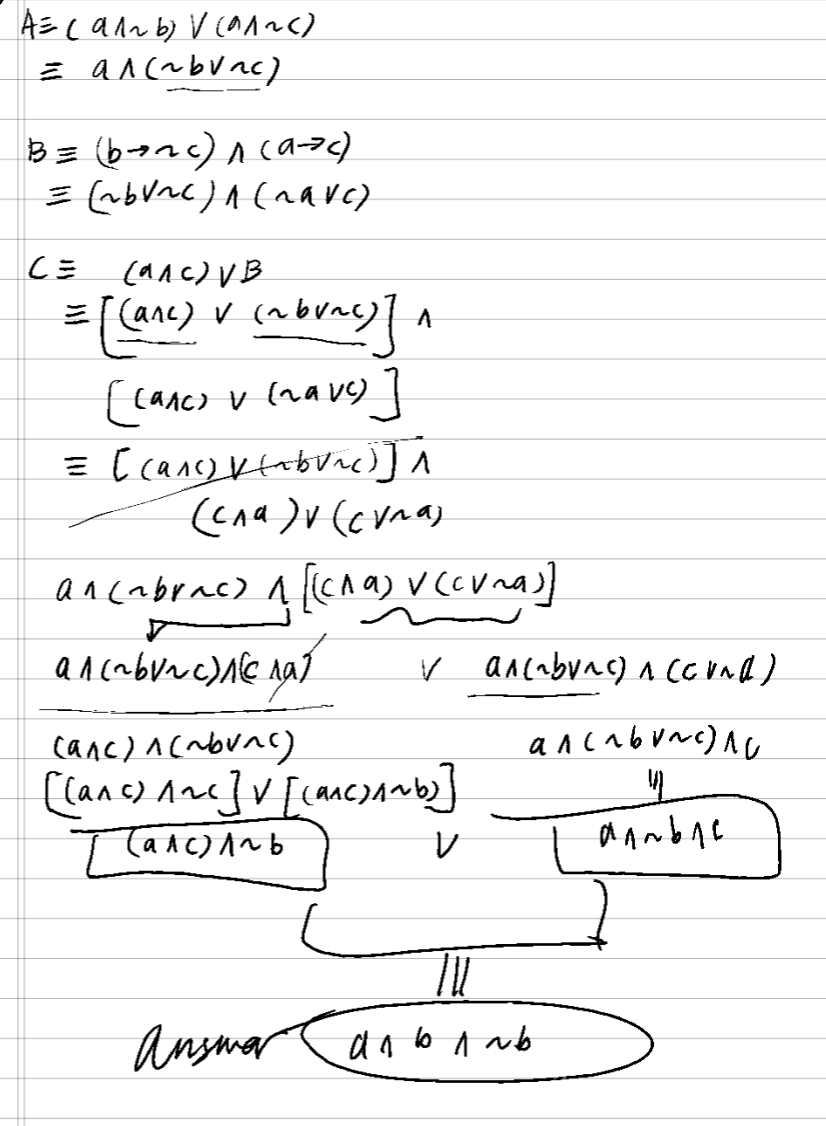 A≡(a∧~b)∨(a∧~c)
≡ a∧(~b∨~c)
B≡(b→~c)∧(a→c)
≡(~b∨~c)∧(~a∨c)
C≡ (a∧c)∨B
≡[(a∧c)∨(~b∨~c)]∧
[(a∧c)∨(~a∨c)]
≡[(a∧c)∨(~b∨~c)]∧
(c∧a)∨(c∨~a)
a∧(~b∨~c)∧[(c∧a)∨(c∨~a)]
a∧(~b∨~c)∧(c∧a) ∨ a∧(~b∨~c)∧(c∨~a)
(a∧c)∧(~b∨~c) a∧(~b∨~c)∧c
[(a∧c)∧~c]∨[(a∧c)∧~b] ≡
(a∧c)∧~b ∨ a∧~b∧c
≡
Answer a∧b∧~b